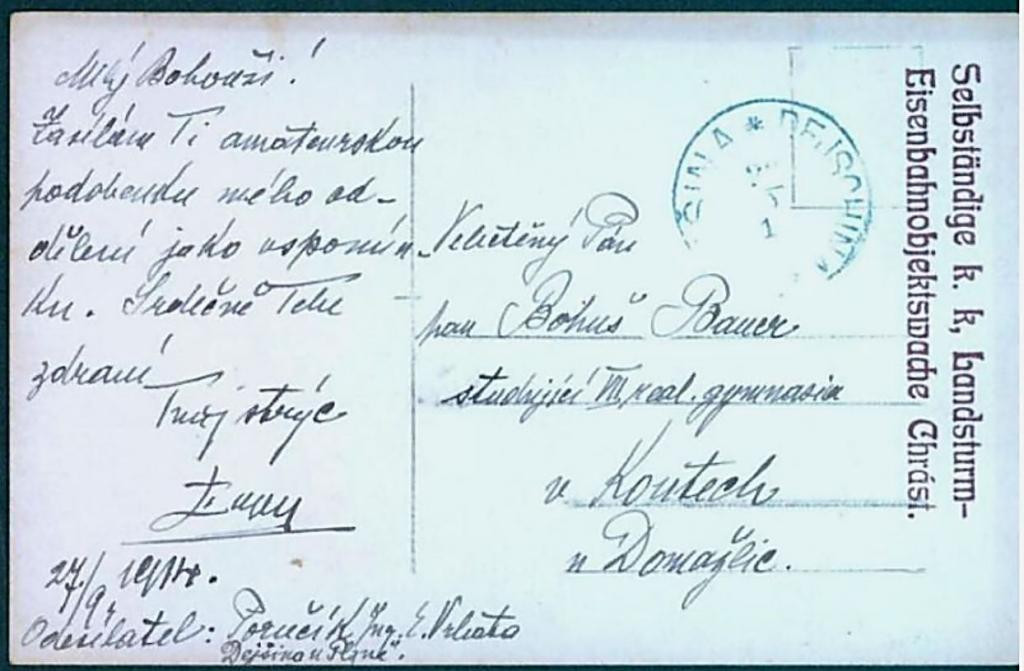 Milý Bohouši!
Zasílám Ti amateurskou
podobenku mého od-
dělení jako vspomín
ku. Srdečně Tebe
zdraví
Tvůj strýc
27/9. 1914.
Odesílatel: Poručík Ing. E.
Dejšina u Plzně.
Velectěný Pán
pan Bohuš Bauer
studující VII. real. gymnasia
v Koutech
u Domažlic.
ŠINA * DEJSCHINA
1
Selbständige k. k. Landsturm-
Eisenbahnobjektswache Chrást.